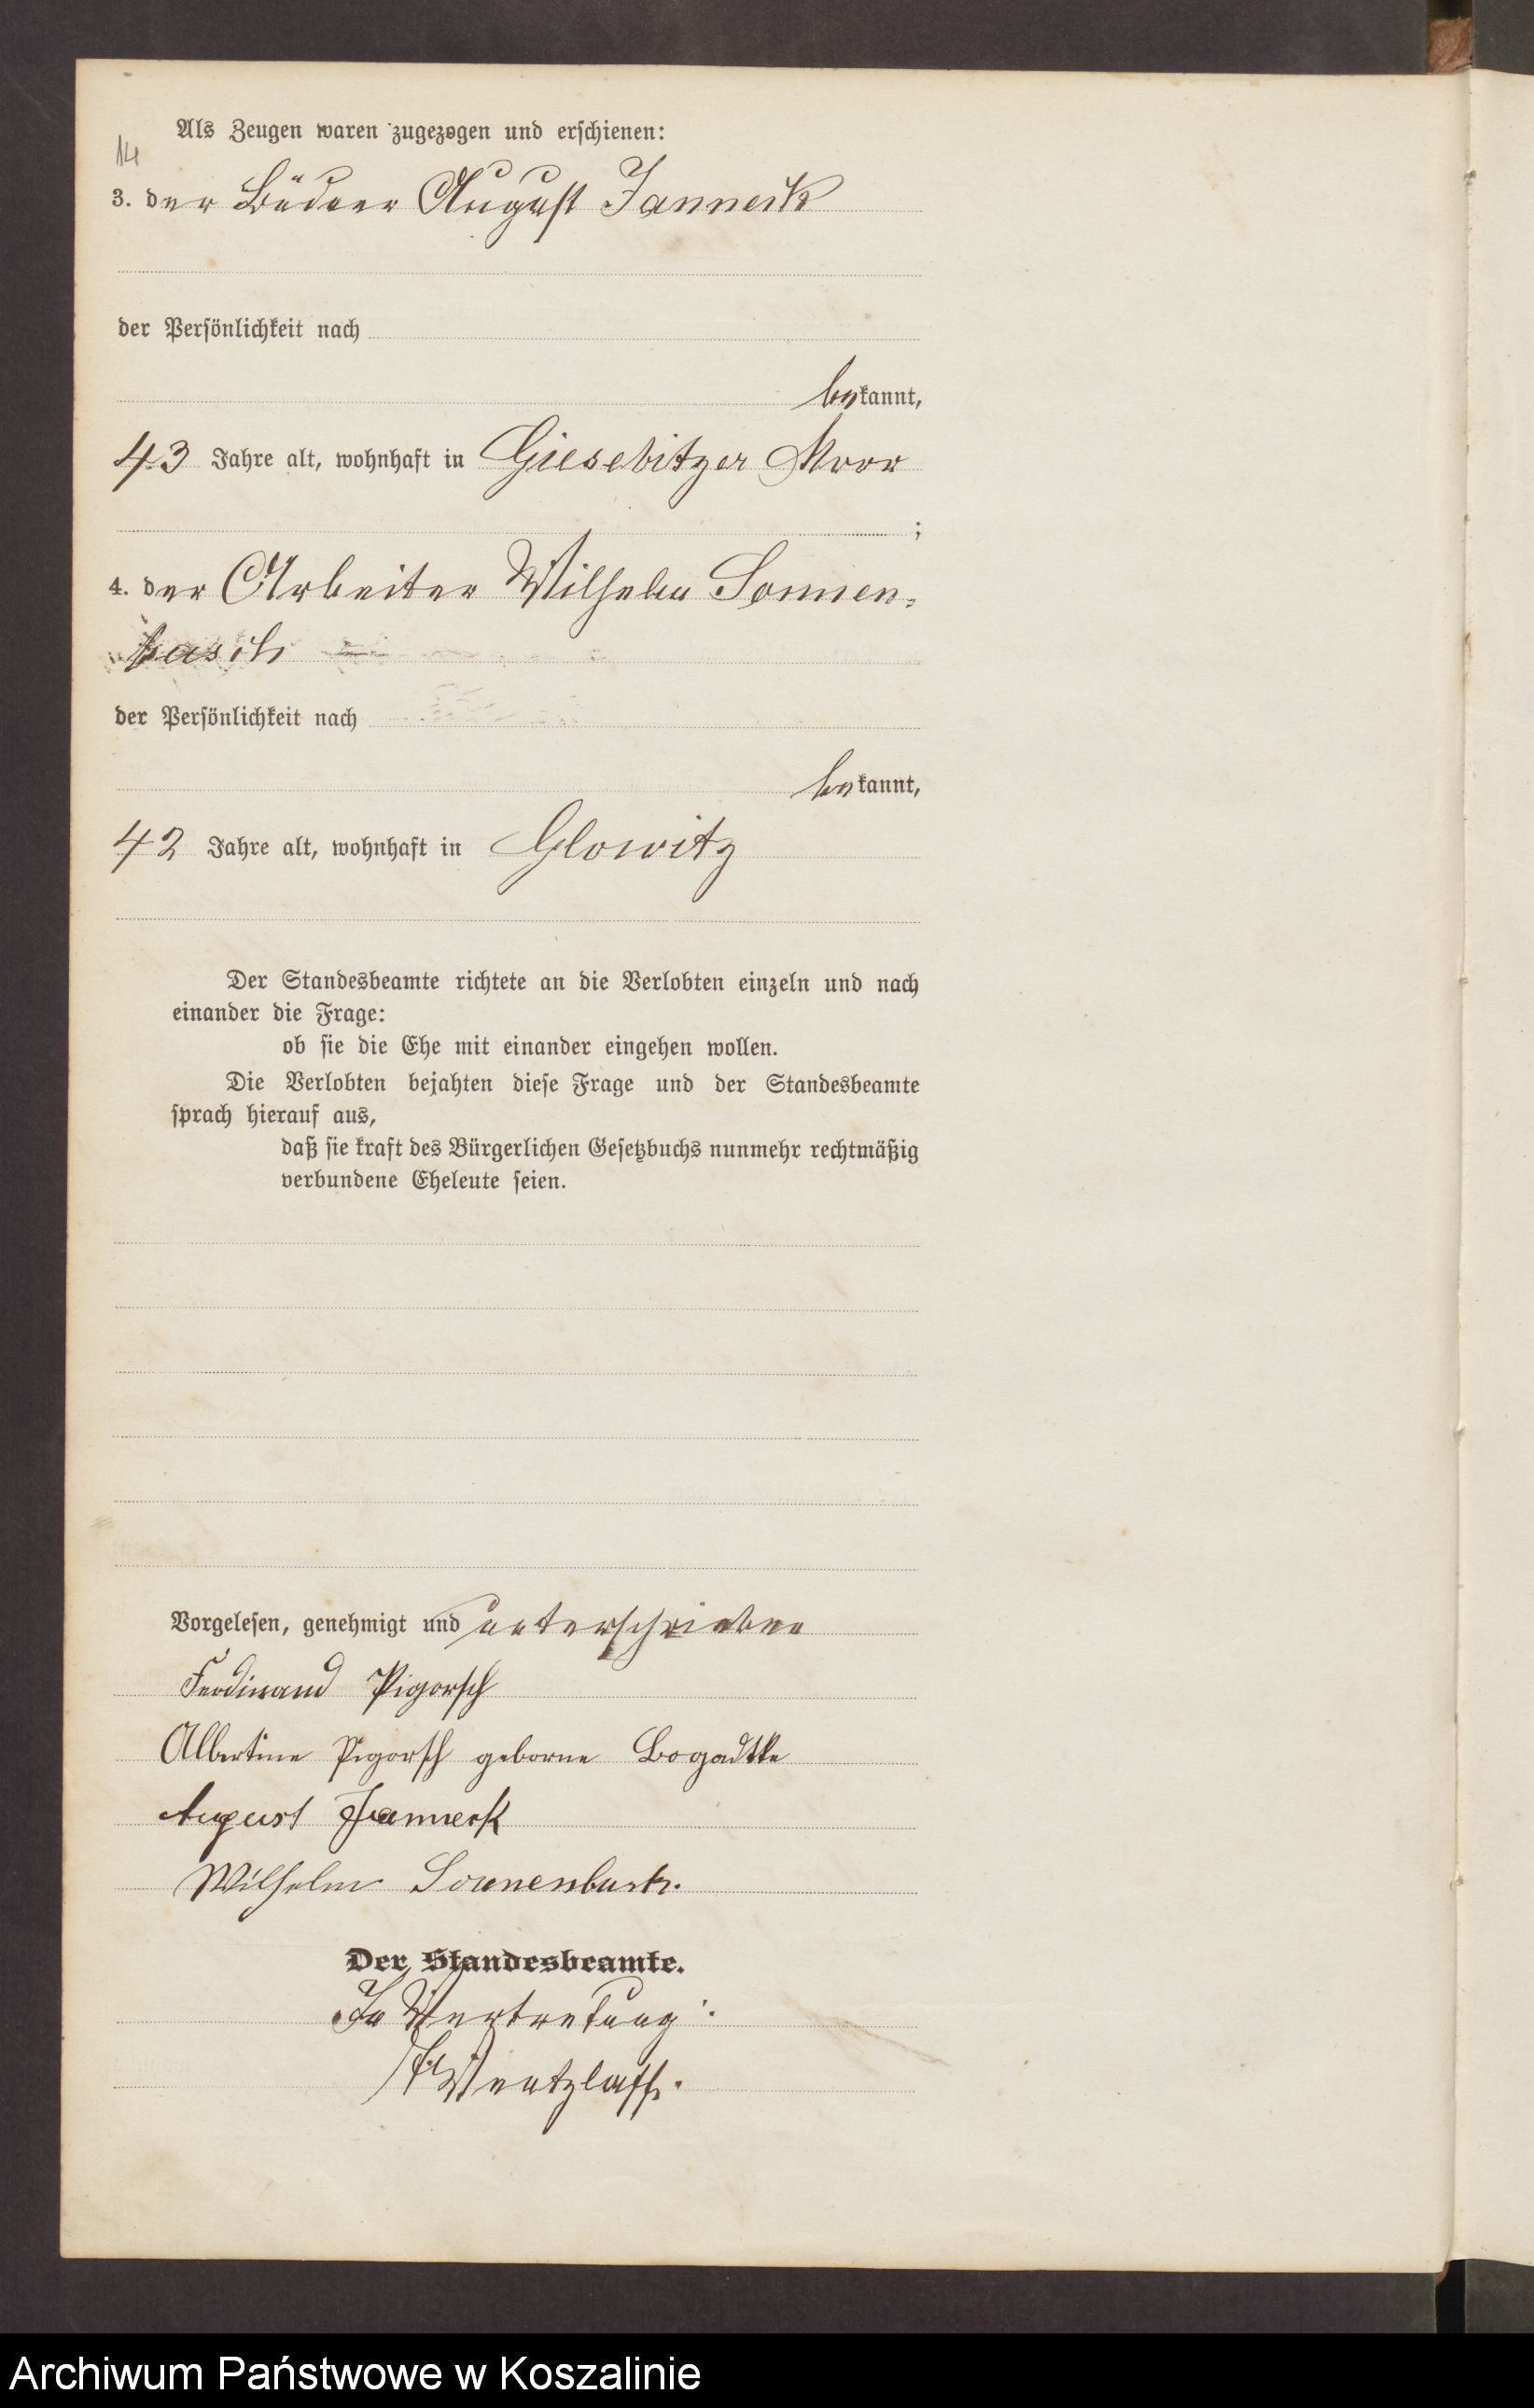 14
Als Zeugen waren zugezogen und erschienen:
3. der Büdner August Janneck
der Persönlichkeit nach
bekannt,
43 Jahre alt, wohnhaft in Giesebitzer Moor
;
4. der Arbeiter Wilhelm Sonnen-
busch
der Persönlichkeit nach
bekannt,
42 Jahre alt, wohnhaft in Glowitz
Der Standesbeamte richtete an die Verlobten einzeln und nach
einander die Frage:
ob sie die Ehe mit einander eingehen wollen.
Die Verlobten bejahten diese Frage und der Standesbeamte
sprach hierauf aus,
daß sie kraft des Bürgerlichen Gesetzbuchs nunmehr rechtmäßig
verbundene Eheleute seien.
Vorgelesen, genehmigt und unterschrieben
Ferdinand Pigorsch
Albertine Pigorsch geborne Bogadtke
August Janneck
Wilhelm
Der Standesbeamte.
In Vertretung:
Wentzlaff.
Archiwum Państwowe w Koszalinie